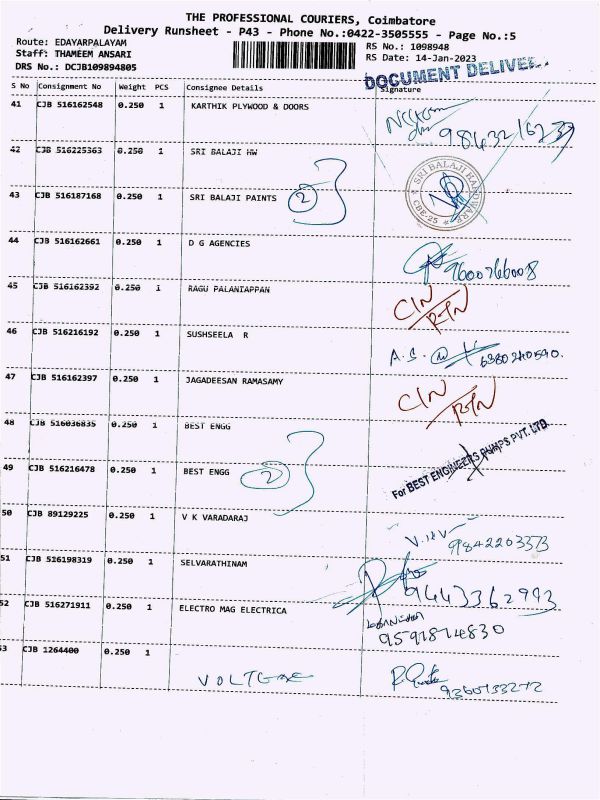 THE PROFESSIONAL COURIERS, Coimbatore
Delivery Runsheet - P43 - Phone No.:0422-3505555 - Page No.:5
Route: EDAYARPALAYAM
RS No.: 1098948
Staff: THAMEEM ANSARI
RS Date: 14-Jan-2023
DRS No.: DCJB109894805
DOCUMENT DELIVE
S No Consignment No Weight PCS Consignee Details Signature
41 CJB 516162548 0.250 1 KARTHIK PLYWOOD & DOORS
42 CJB 516225363 0.250 1 SRI BALAJI HW
SRI BALAJI HARDWARE
CBE-25
43 CJB 516187168 0.250 1 SRI BALAJI PAINTS 2
44 CJB 516162661 0.250 1 D G AGENCIES
9600766008
45 CJB 516162392 0.250 1 RAGU PALANIAPPAN CIN
RTN
46 CJB 516216192 0.250 1 SUSHSEELA R
A.S. 6380240590.
47 CJB 516162397 0.250 1 JAGADEESAN RAMASAMY CIN
RTN
48 CJB 516036835 0.250 1 BEST ENGG
For BEST ENGINEERS PUMPS PVT. LTD
49 CJB 516216478 0.250 1 BEST ENGG 2
50 CJB 89129225 0.250 1 V K VARADARAJ
9842203373
51 CJB 526198319 0.250 1 SELVARATHINAM
9443362993
52 CJB 516271911 0.250 1 ELECTRO MAG ELECTRICA
9591874830
53 CJB 1264400 0.250 1
9360133272